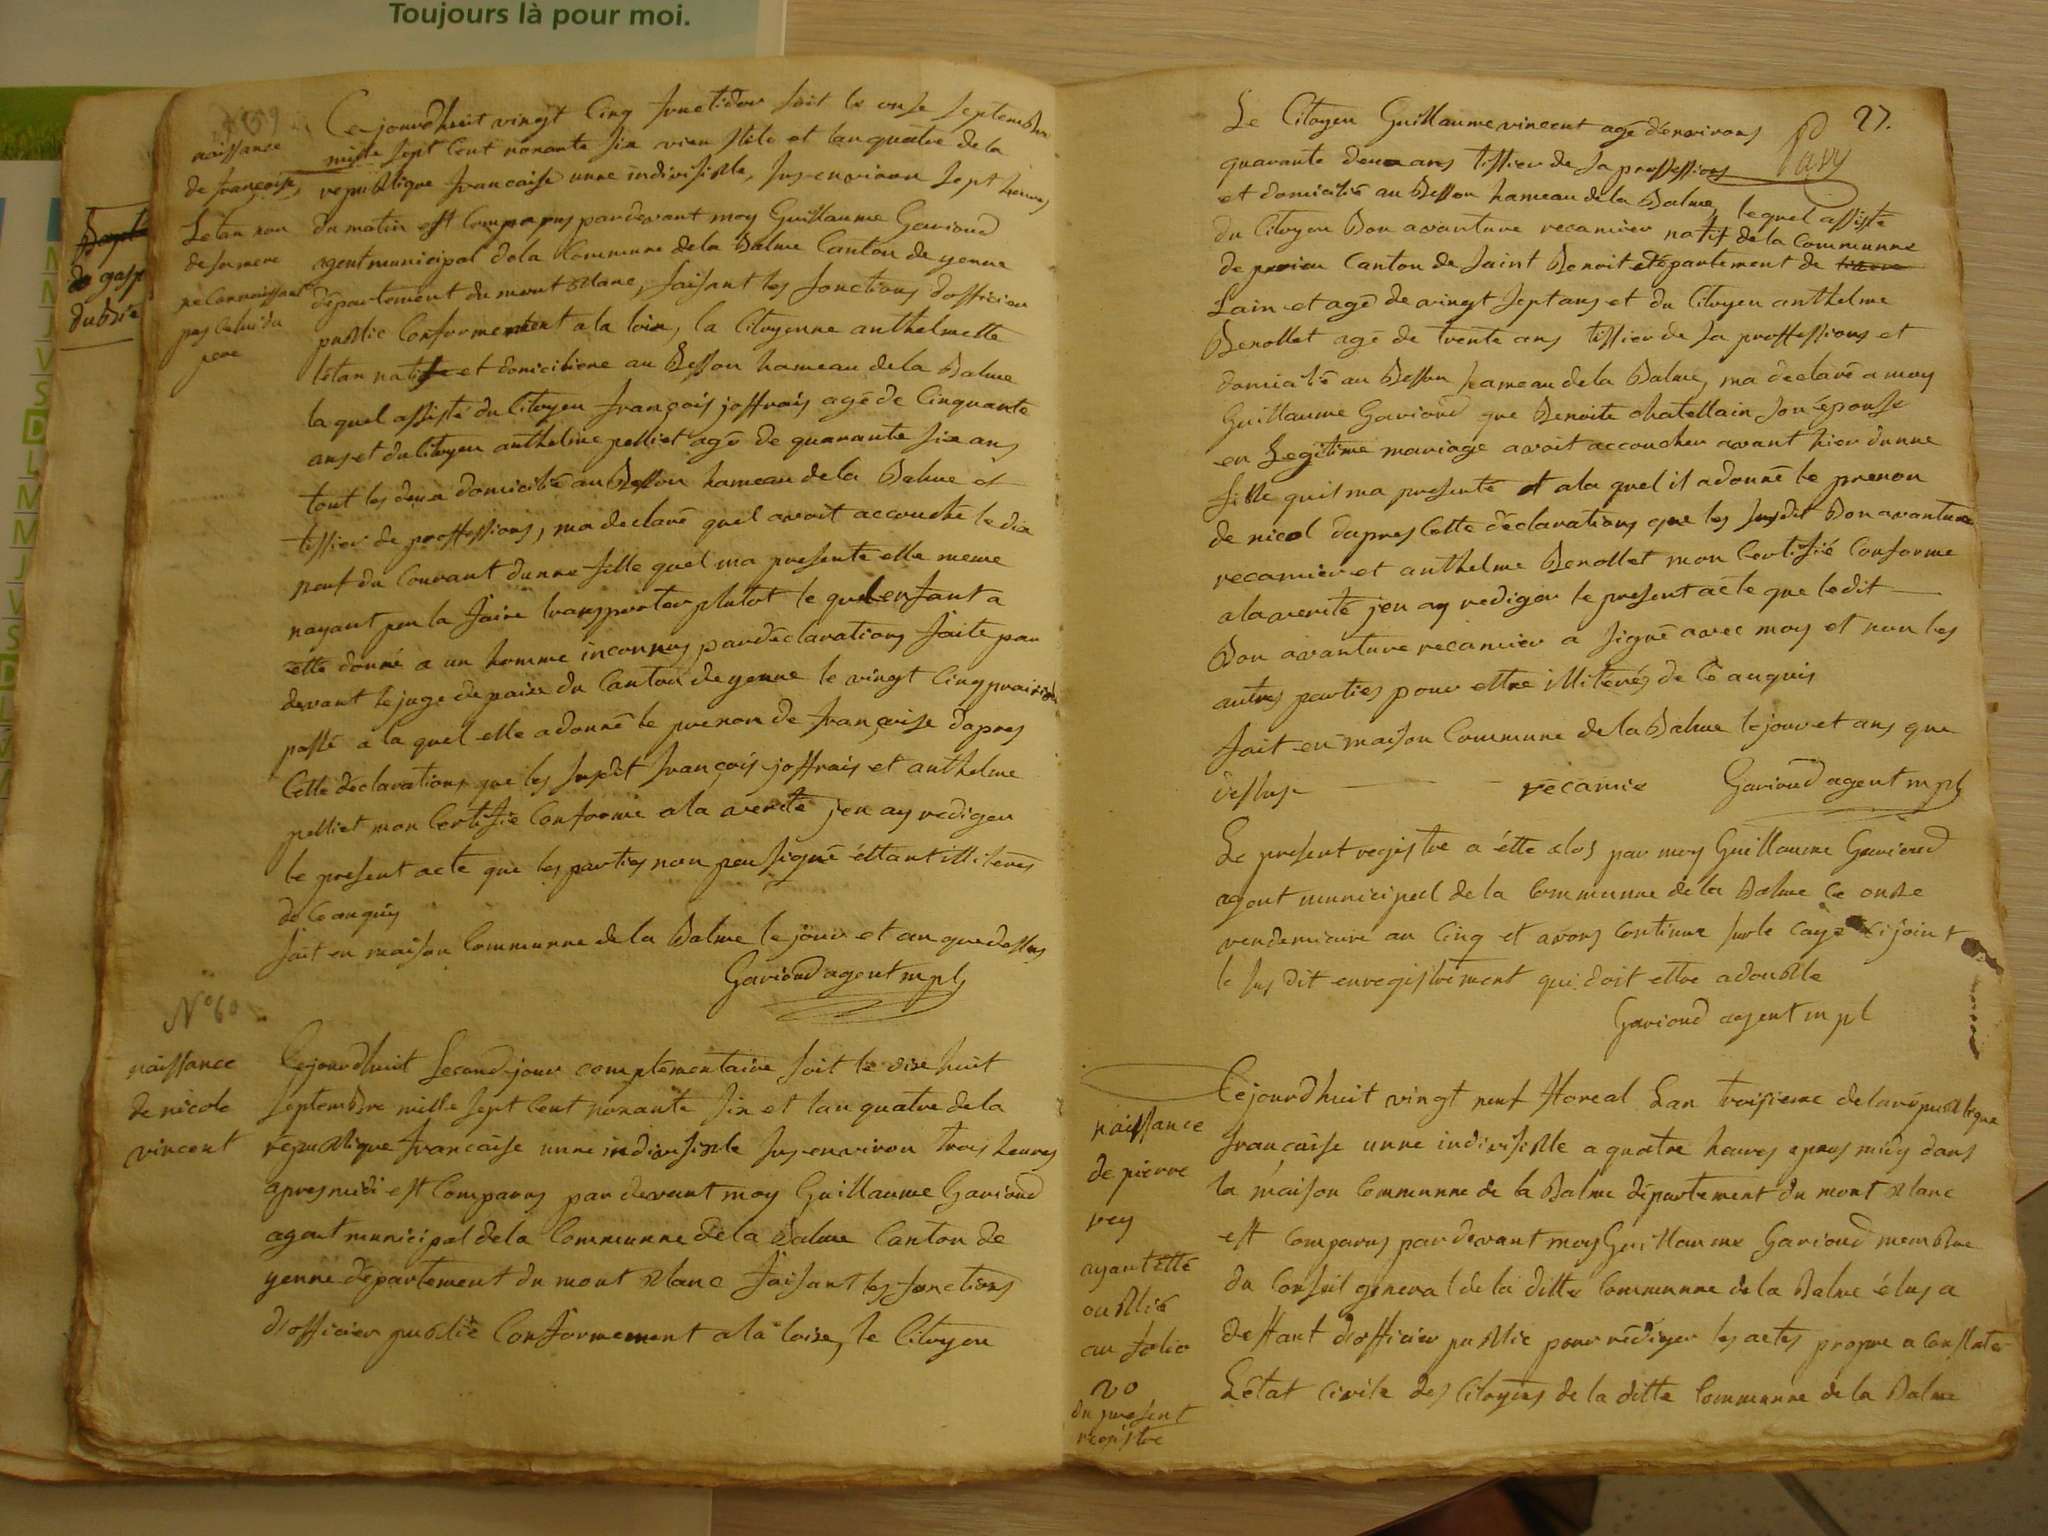 Toujours là pour moi.
N°59
naissance
de françoise
Letan non
de sa mere
ne connoissant
pas celui du
pere
Cejourdhuit vingt Cinq fructidor soit le onse septembre
mille sept Cent nonante six vieu stile et lan quatre de la
republique francaise unne indivisible, sus environ sept heures
du matin est Comparus pardevant moy Guillaume Gavioud
agent municipal dela Commune dela Balme Canton de yenne
département du mont blanc, faisant les fonctions dofficier
public Conformement a la loix, la Citoyenne anthelmette
létan natife et domiciliene au Besson hameau dela Balme
la quel assisté du Citoyen françois joffrais agé de Cinquante
ans et du Citoyen anthelme pelliet agé de quarante six ans
tout les deux domicilié au Besson hameau dela Balme et
tissier de proffessions, ma declaré quel avoit accouché le dix
neuf du Courant dunne fille quel ma presenté elle meme
nayant peu la faire transporter plutot le quel enfant a
étté donné a un homme inconnus par déclarations faite par
devant le juge de paix du Canton de yenne le vingt Cinq prairial
passé a la quel elle a donné le prenon de françoise dapres
Cette déclarations que les susdit françois joffrais et anthelme
pelliet mon Certifié Conforme a la verité jen ay rediger
le present acte que les parties non peu signé éttant illiterés
de Ce anquis
fait en maison Communne de la Balme le jour et an que dessus
Gavioud agent mpl
N°60
naissance
de nicole
vincent
Cejourdhuit Second jour complementaire soit le dixe huit
septembre mille sept Cent nonante six et lan quatre de la
republique francaise unne indivisible sus environ trois heures
apres midi est Comparus par devant moy Guillaume Gavioud
agent municipal dela Communne de la Balme Canton de
yenne département du mont blanc faisant les fonctions
dofficier public Conformement a la loixe, le Citoyen
27.
Le Citoyen Guillaume vincent agé denvirons
quarante deux ans tissier de sa proffessions
et domicilié au Besson hameau de la Balme lequel assisté
du Citoyen Bon avanture recamier natif de la Communne
de Canton de Saint Benoit département de
Lain et agé de vingt sept ans et du Citoyen anthelme
Benollet agé de trente ans tissier de sa proffessions et
domicilié au Besson hameau de la Balme, ma déclaré a moy
Guillaume Gavioud que Benoite chatellain son épouse
en Legitime mariage avoit accoucher avant hier dunne
fille quil ma presenté et a la quel il a donné le prenon
de nicol dapres Cette déclarations que les susdit Bon avanture
recamier et anthelme Benollet mon Certifié Conforme
a la verité jen ay rediger le present acte que ledit
Bon avanture recamier a signé avec moy et non les
autres parties pour ettre illiterés de Ce anquis
fait en maison Commune de la Balme le jour et ans que
dessus recamie Gavioud agent mpl
Le present registre a étté clos par moy Guillaume Gavioud
agent municipal de la Communne de la Balme Ce onze
vendemiaire an Cinq et avons Continue sur le Caye Ci joint
le sus dit enregistrement qui doit ettre adouble
Gavioud agent mpl
naissance
de pierre
rey
ayant étté
oublié
au folio
20
du present
registre
Cejourdhuit vingt neuf floreal Lan troisieme de la republique
francaise unne indivisible a quatre heures apres midy dans
la maison Communne de la Balme département du mont blanc
est Comparus par devant moy Guillaume Gavioud membre
du Conseil general de la ditte Communne de la Balme élus a
deffaut dofficier public pour rédiger les actes propre a Constater
Létat Civile des Citoyens de la ditte Communne de la Balme